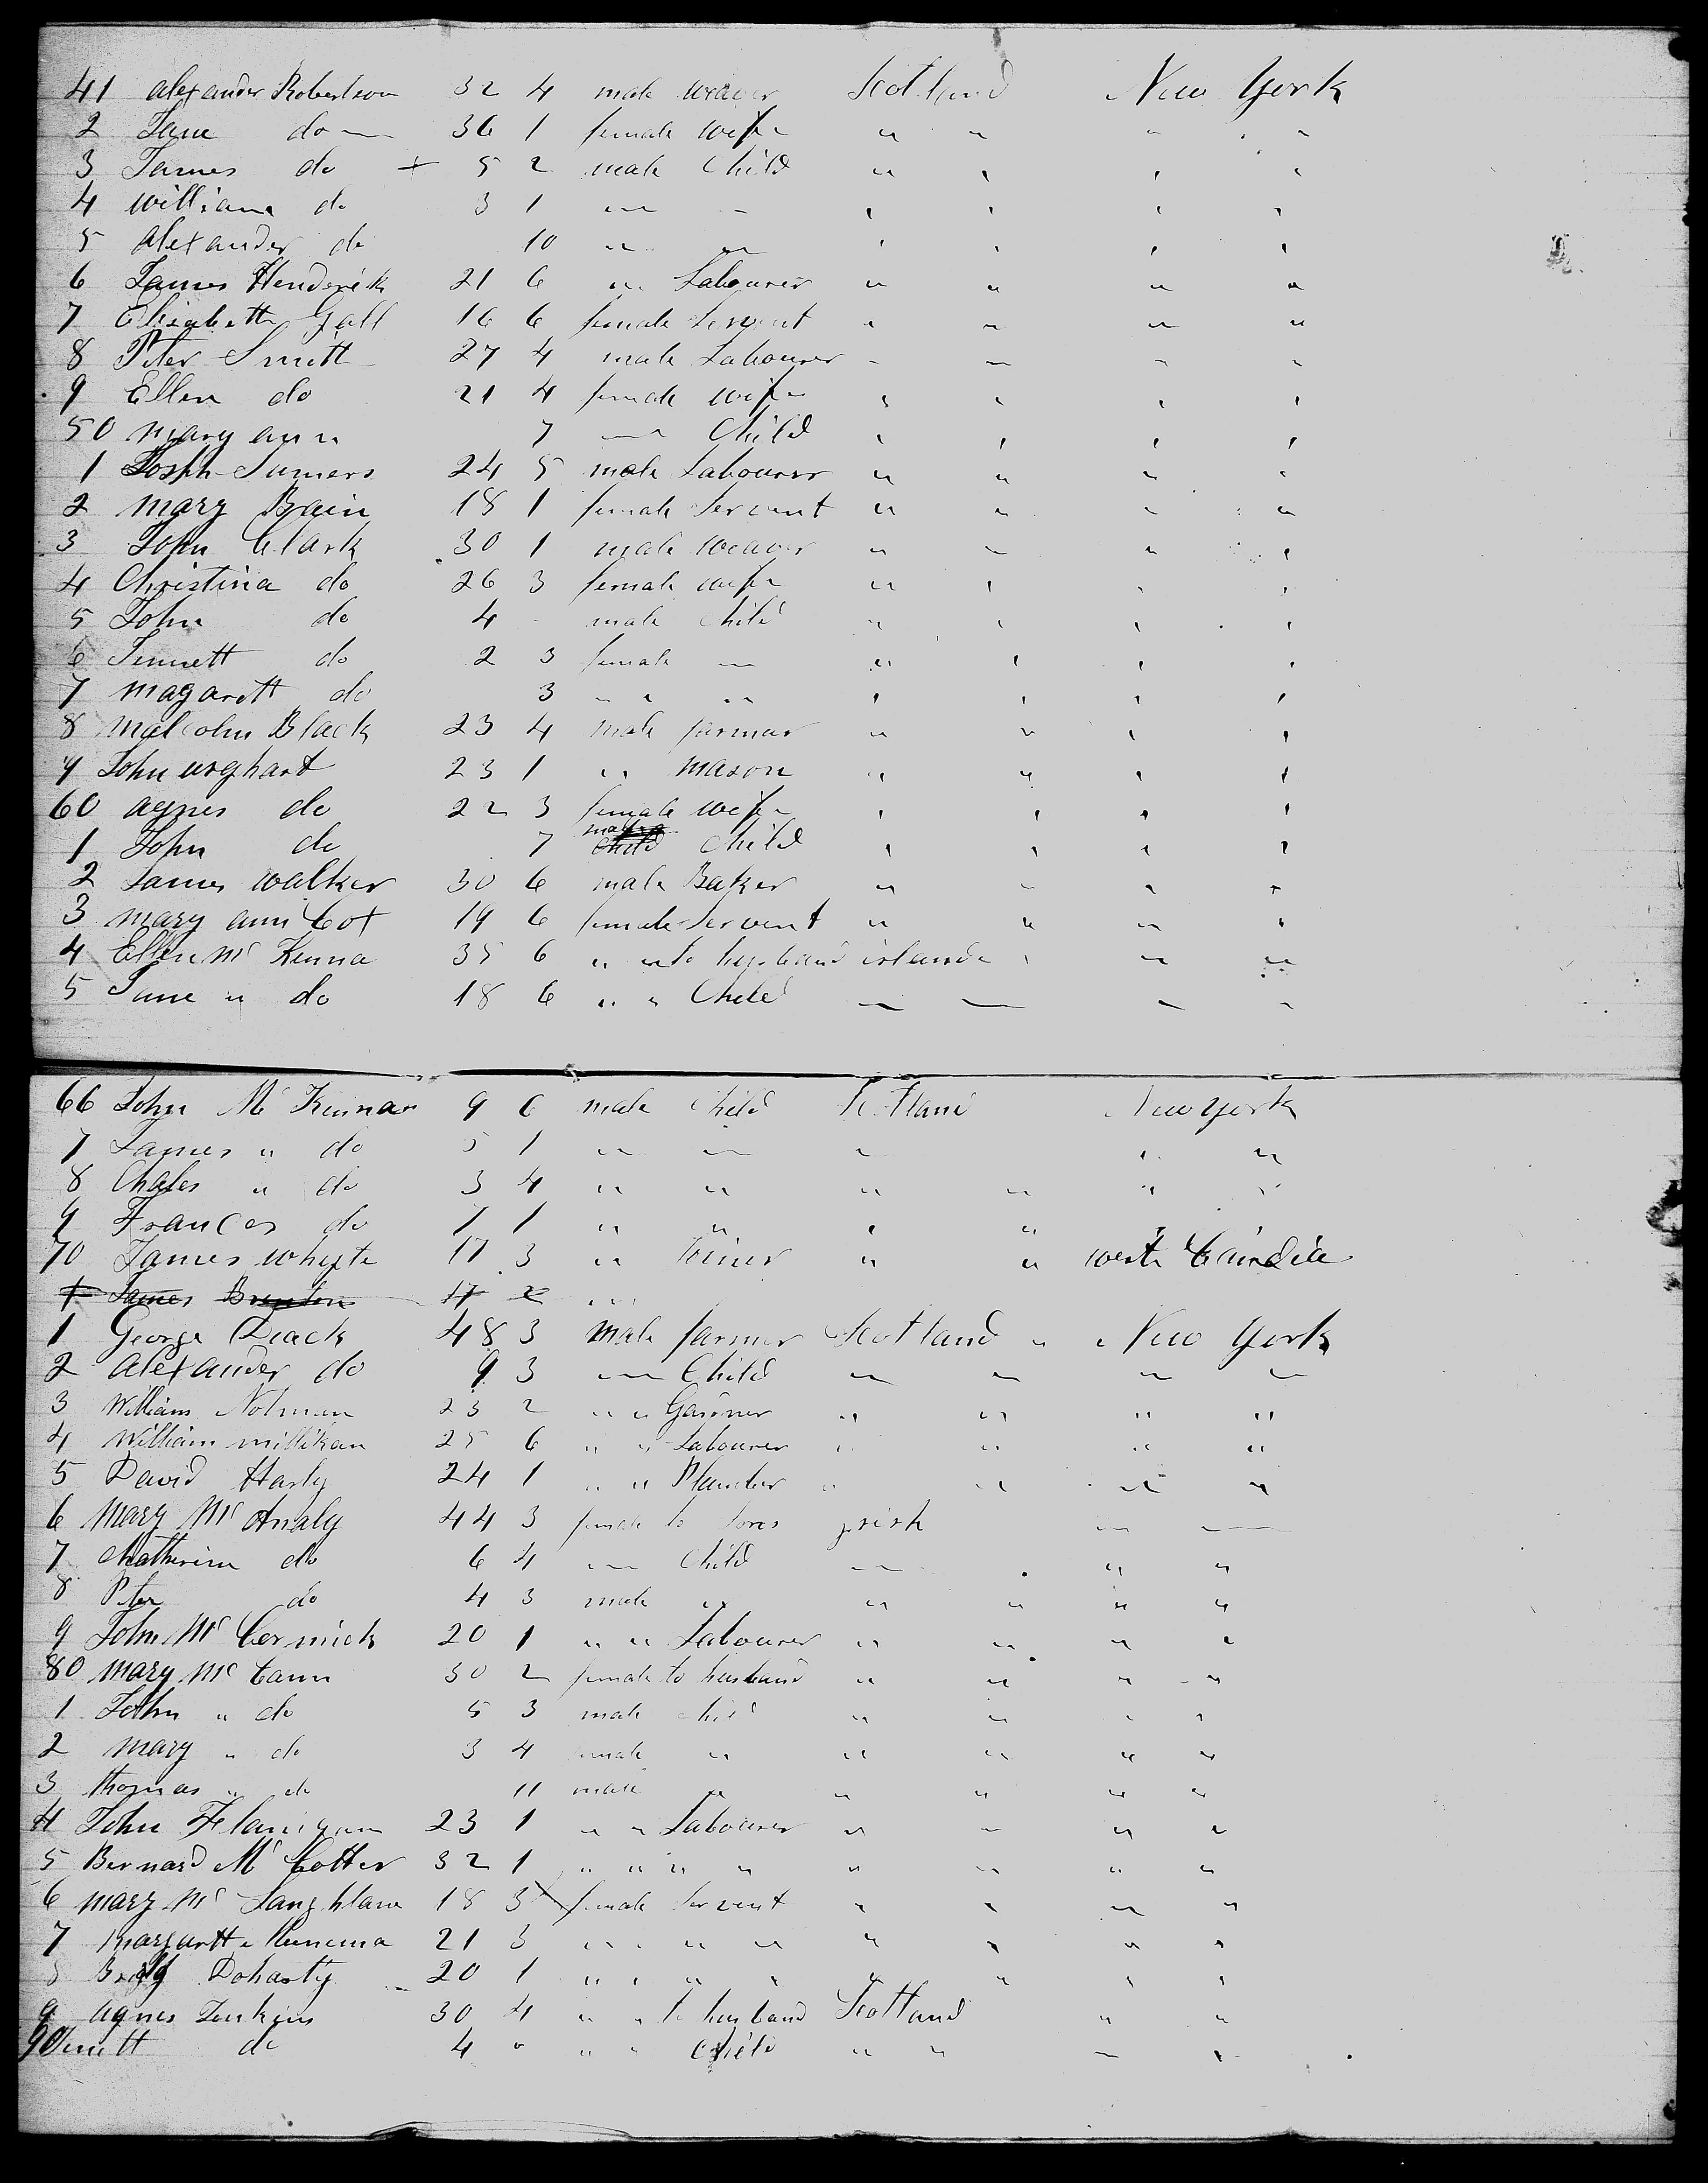 41 alexander Robertson 32 4 male weaver Scotland New York
2 Jane do 36 1 female wife " " " "
3 James do + 5 2 male Child " " " "
4 william do 3 1 " " " " " "
5 alexander do 10 " " " " " "
6 James Henderick 21 6 " Labourer " " " "
7 Elisabeth Gall 16 6 female Servent " " " "
8 Peter Smith 27 4 male Labourer " " " "
9 Ellen do 21 4 female wife " " " "
50 mary ann 7 " Child " " " "
1 Josph Sumers 24 5 male Labourer " " " "
2 mary Bain 18 1 female Servent " " " "
3 John Clark 30 1 male weaver " " " "
4 Christina do 26 3 female wife " " " "
5 John do 4 - male Child " " " "
6 Jennett do 2 3 female " " " " "
7 magarett do 3 " " " " " "
8 malcolm Black 23 4 male farmar " " " "
9 John urghart 23 1 " mason " " " "
60 agnes do 22 3 female wife " " " "
1 John do 7 male Child Child " " " "
2 James walker 30 6 male Baker " " " "
3 mary ann Cox 19 6 female Servent " " " "
4 Ellen Mc Kenna 35 6 " " to husband irland " " "
5 Jane " do 18 6 " " Child " " " "
66 John Mc Kennan 9 6 male Child Scotland New york
7 James " do 5 1 " " " " "
8 Chales " do 3 4 " " " " " "
9 Frances do 1 1 " " " " " "
70 James whyte 17 3 " Joiner " " west
1 James 17 2 "
1 George Diack 48 3 male farmer Scotland " New York
2 alexander do 9 3 " Child " " " "
3 William Notman 23 2 " " Gardner " " " "
4 William millikan 25 6 " " Labourer " " " "
5 David Harly 24 1 " " Plumber " " " "
6 Mary Mc Analy 44 3 female to sons irish " "
7 Chatherine do 6 4 " Child " " "
8 Peter do 4 3 male " " " " "
9 John Mc Cormick 20 1 " " Labourer " " " "
80 mary Mc Cann 30 2 female to husband " " " "
1 John " do 5 3 male child " " " "
2 mary " do 3 4 female " " " " "
3 thomas " do 11 male " " " " "
4 John Flanigan 23 1 " " Labourer " " " "
5 Bernard Mc Cotter 32 1 " " " " " " " "
6 mary Mc 18 3 female Servent " " " "
7 Margartt 21 3 " " " " " " " "
8 Doharty 20 1 " " " " " " " "
9 agnes Jenkins 30 4 " " to husband Scotland " "
90 Jenett do 4 " " " Child " " " "